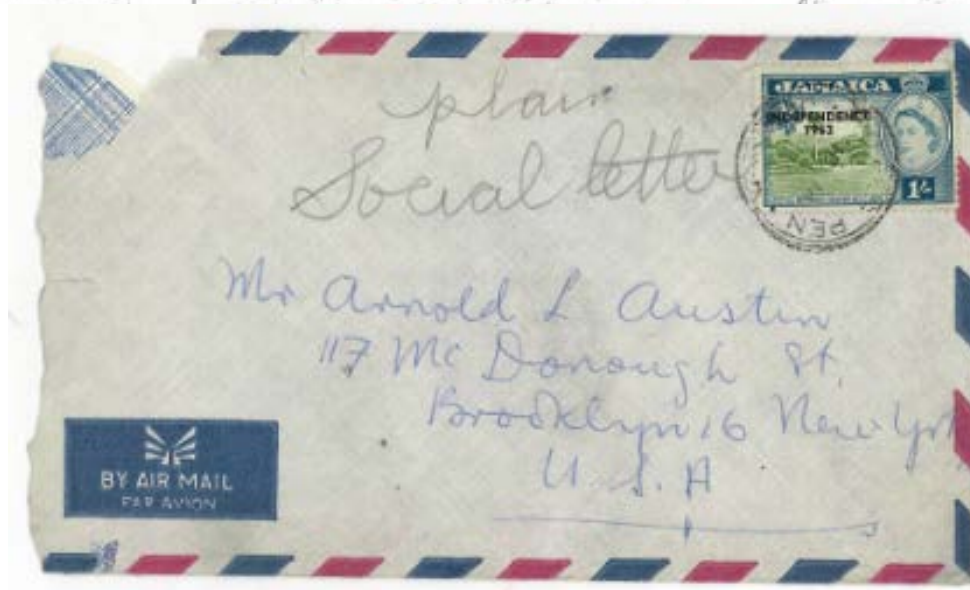 plain
Social letter
JAMAICA
INDEPENDENCE
1962
1/-
PEN
Mr Arnold L Austin
117 Mc Donough St.
Brooklyn 16 New York
U. S. A
BY AIR MAIL
PAR AVION